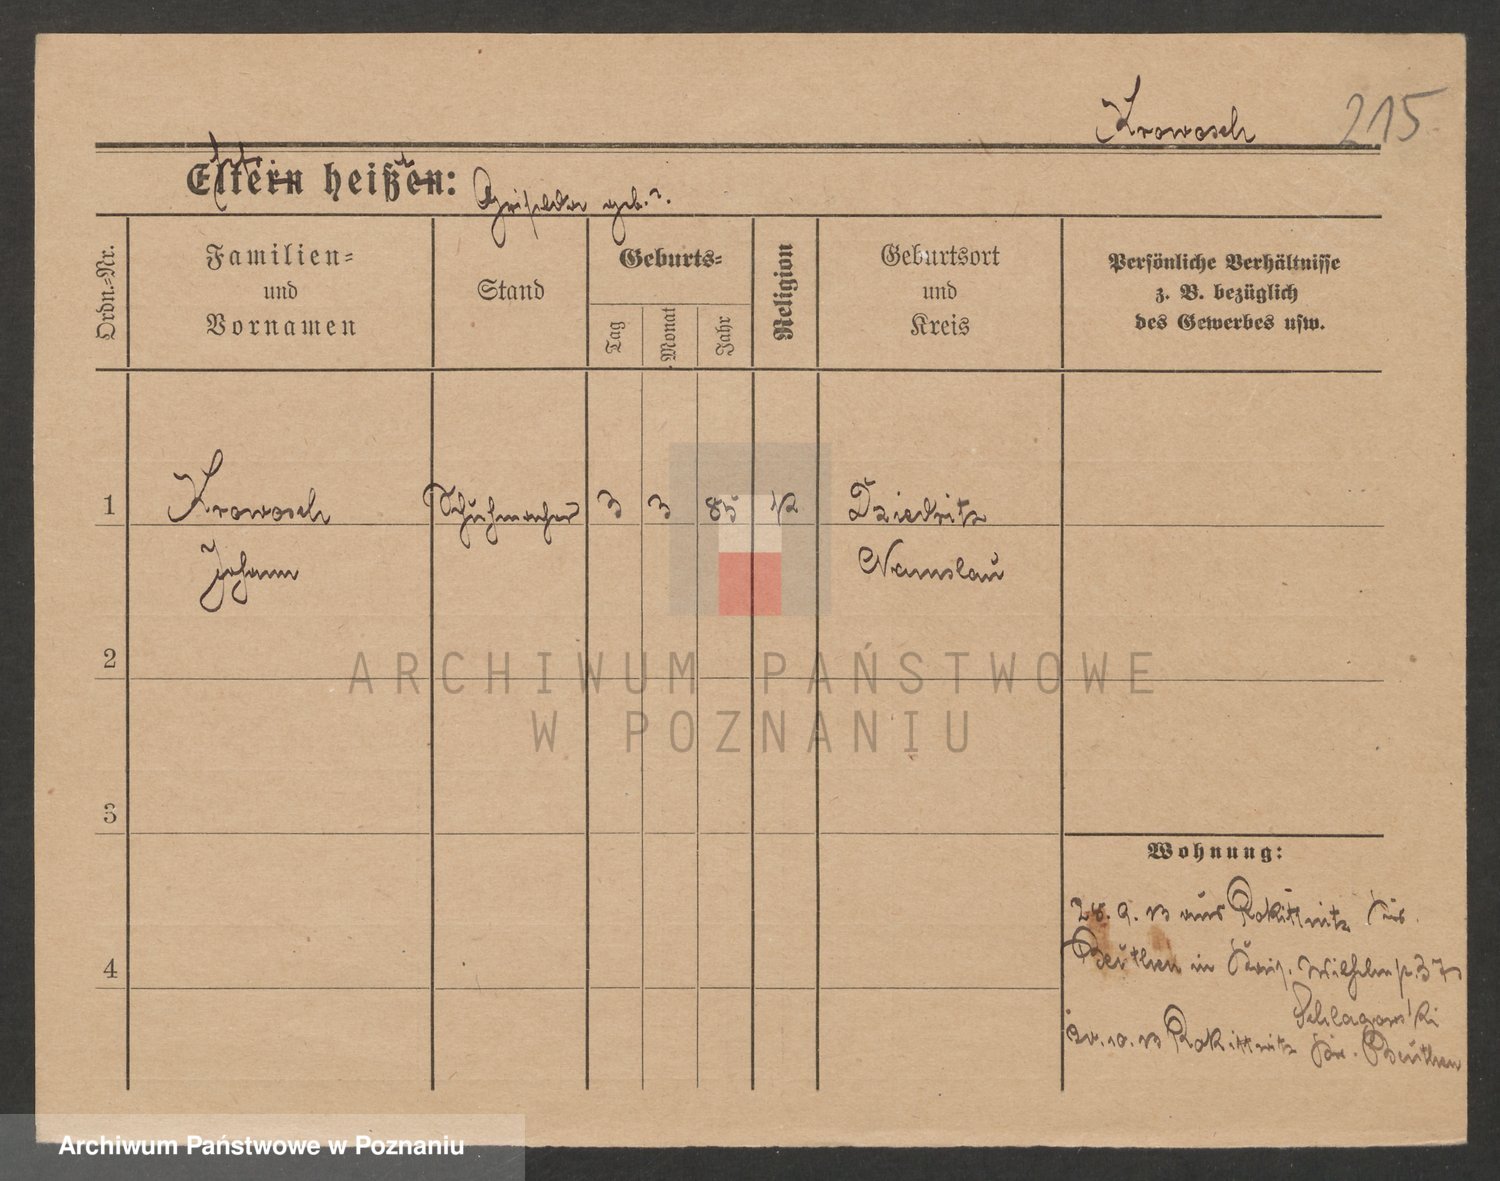 Krowosch 215
Eltern heißen: Griselda geb. ?.
Ordn.-Nr.
Familien-
und
Vornamen
Stand
Geburts-
Tag
Monat
Jahr
Religion
Geburtsort
und
Kreis
Persönliche Verhältnisse
z. B. bezüglich
des Gewerbes usw.
1 Krowosch Schuhmacher 3 3 85 k Dziedzitz
Johann Namslau
2
ARCHIWUM PAŃSTWOWE
W POZNANIU
3
Wohnung:
28. 9. 13 aus Rokittnitz Kr.
Beuthen in Wilhelmstr. 37
4
10. 13 Rokittnitz Kr. Beuthen
Archiwum Państwowe w Poznaniu